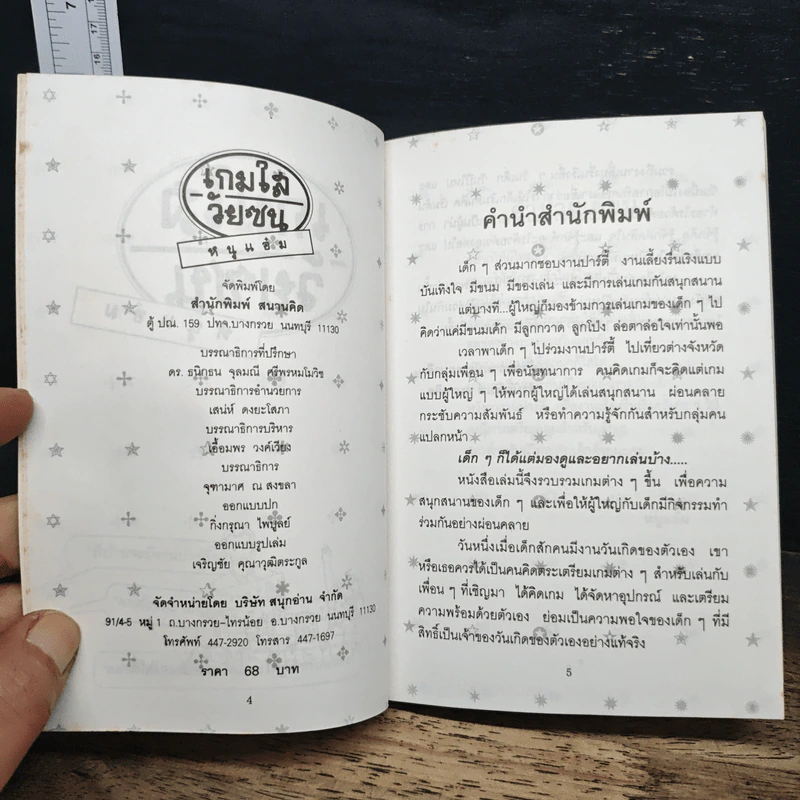 7
17
16
เกมใส
วัยซน
หนูแอ๋ม
จัดพิมพ์โดย
สำนักพิมพ์ สนานคิด
ตู้ ปณ. 159 ปทจ.บางกรวย นนทบุรี 11130
บรรณาธิการที่ปรึกษา
ดร. ธนิกุธน จุลมณี ศรีพรหมโมวิช
บรรณาธิการอำนวยการ
เสน่ห์ ดงยะโสภา
บรรณาธิการบริหาร
เอื้อมพร วงค์เวียง
บรรณาธิการ
จุฑามาศ ณ สงขลา
ออกแบบปก
กิ่งกรุณา ไพบูลย์
ออกแบบรูปเล่ม
เจริญชัย คุณาวุฒิตระกูล
จัดจำหน่ายโดย บริษัท สนุกอ่าน จำกัด
91/4-5 หมู่ 1 ถ.บางกรวย-ไทรน้อย อ.บางกรวย นนทบุรี 11130
โทรศัพท์ 447-2920 โทรสาร 447-1697
ราคา 68 บาท
4
คำนำสำนักพิมพ์
เด็ก ๆ ส่วนมากชอบงานปาร์ตี้ งานเลี้ยงรื่นเริงแบบ
บันเทิงใจ มีขนม มีของเล่น และมีการเล่นเกมกันสนุกสนาน
แต่บางที...ผู้ใหญ่ก็มองข้ามการเล่นเกมของเด็ก ๆ ไป
คิดว่าแค่มีขนมเค้ก มีลูกกวาด ลูกโป่ง ล่อตาล่อใจเท่านั้นพอ
เวลาพาเด็ก ๆ ไปร่วมงานปาร์ตี้ ไปเที่ยวต่างจังหวัด
กับกลุ่มเพื่อน ๆ เพื่อนันทนาการ คนคิดเกมก็จะคิดแต่เกม
แบบผู้ใหญ่ ๆ ให้พวกผู้ใหญ่ได้เล่นสนุกสนาน ผ่อนคลาย
กระชับความสัมพันธ์ หรือทำความรู้จักกันสำหรับกลุ่มคน
แปลกหน้า
เด็ก ๆ ก็ได้แต่มองดูและอยากเล่นบ้าง.....
หนังสือเล่มนี้จึงรวบรวมเกมต่าง ๆ ขึ้น เพื่อความ
สนุกสนานของเด็ก ๆ และเพื่อให้ผู้ใหญ่กับเด็กมีกิจกรรมทำ
ร่วมกันอย่างผ่อนคลาย
วันหนึ่งเมื่อเด็กสักคนมีงานวันเกิดของตัวเอง เขา
หรือเธอควรได้เป็นคนคิดตระเตรียมเกมต่าง ๆ สำหรับเล่นกับ
เพื่อน ๆ ที่เชิญมา ได้คิดเกม ได้จัดหาอุปกรณ์ และเตรียม
ความพร้อมด้วยตัวเอง ย่อมเป็นความพอใจของเด็ก ๆ ที่มี
สิทธิ์เป็นเจ้าของวันเกิดของตัวเองอย่างแท้จริง
5